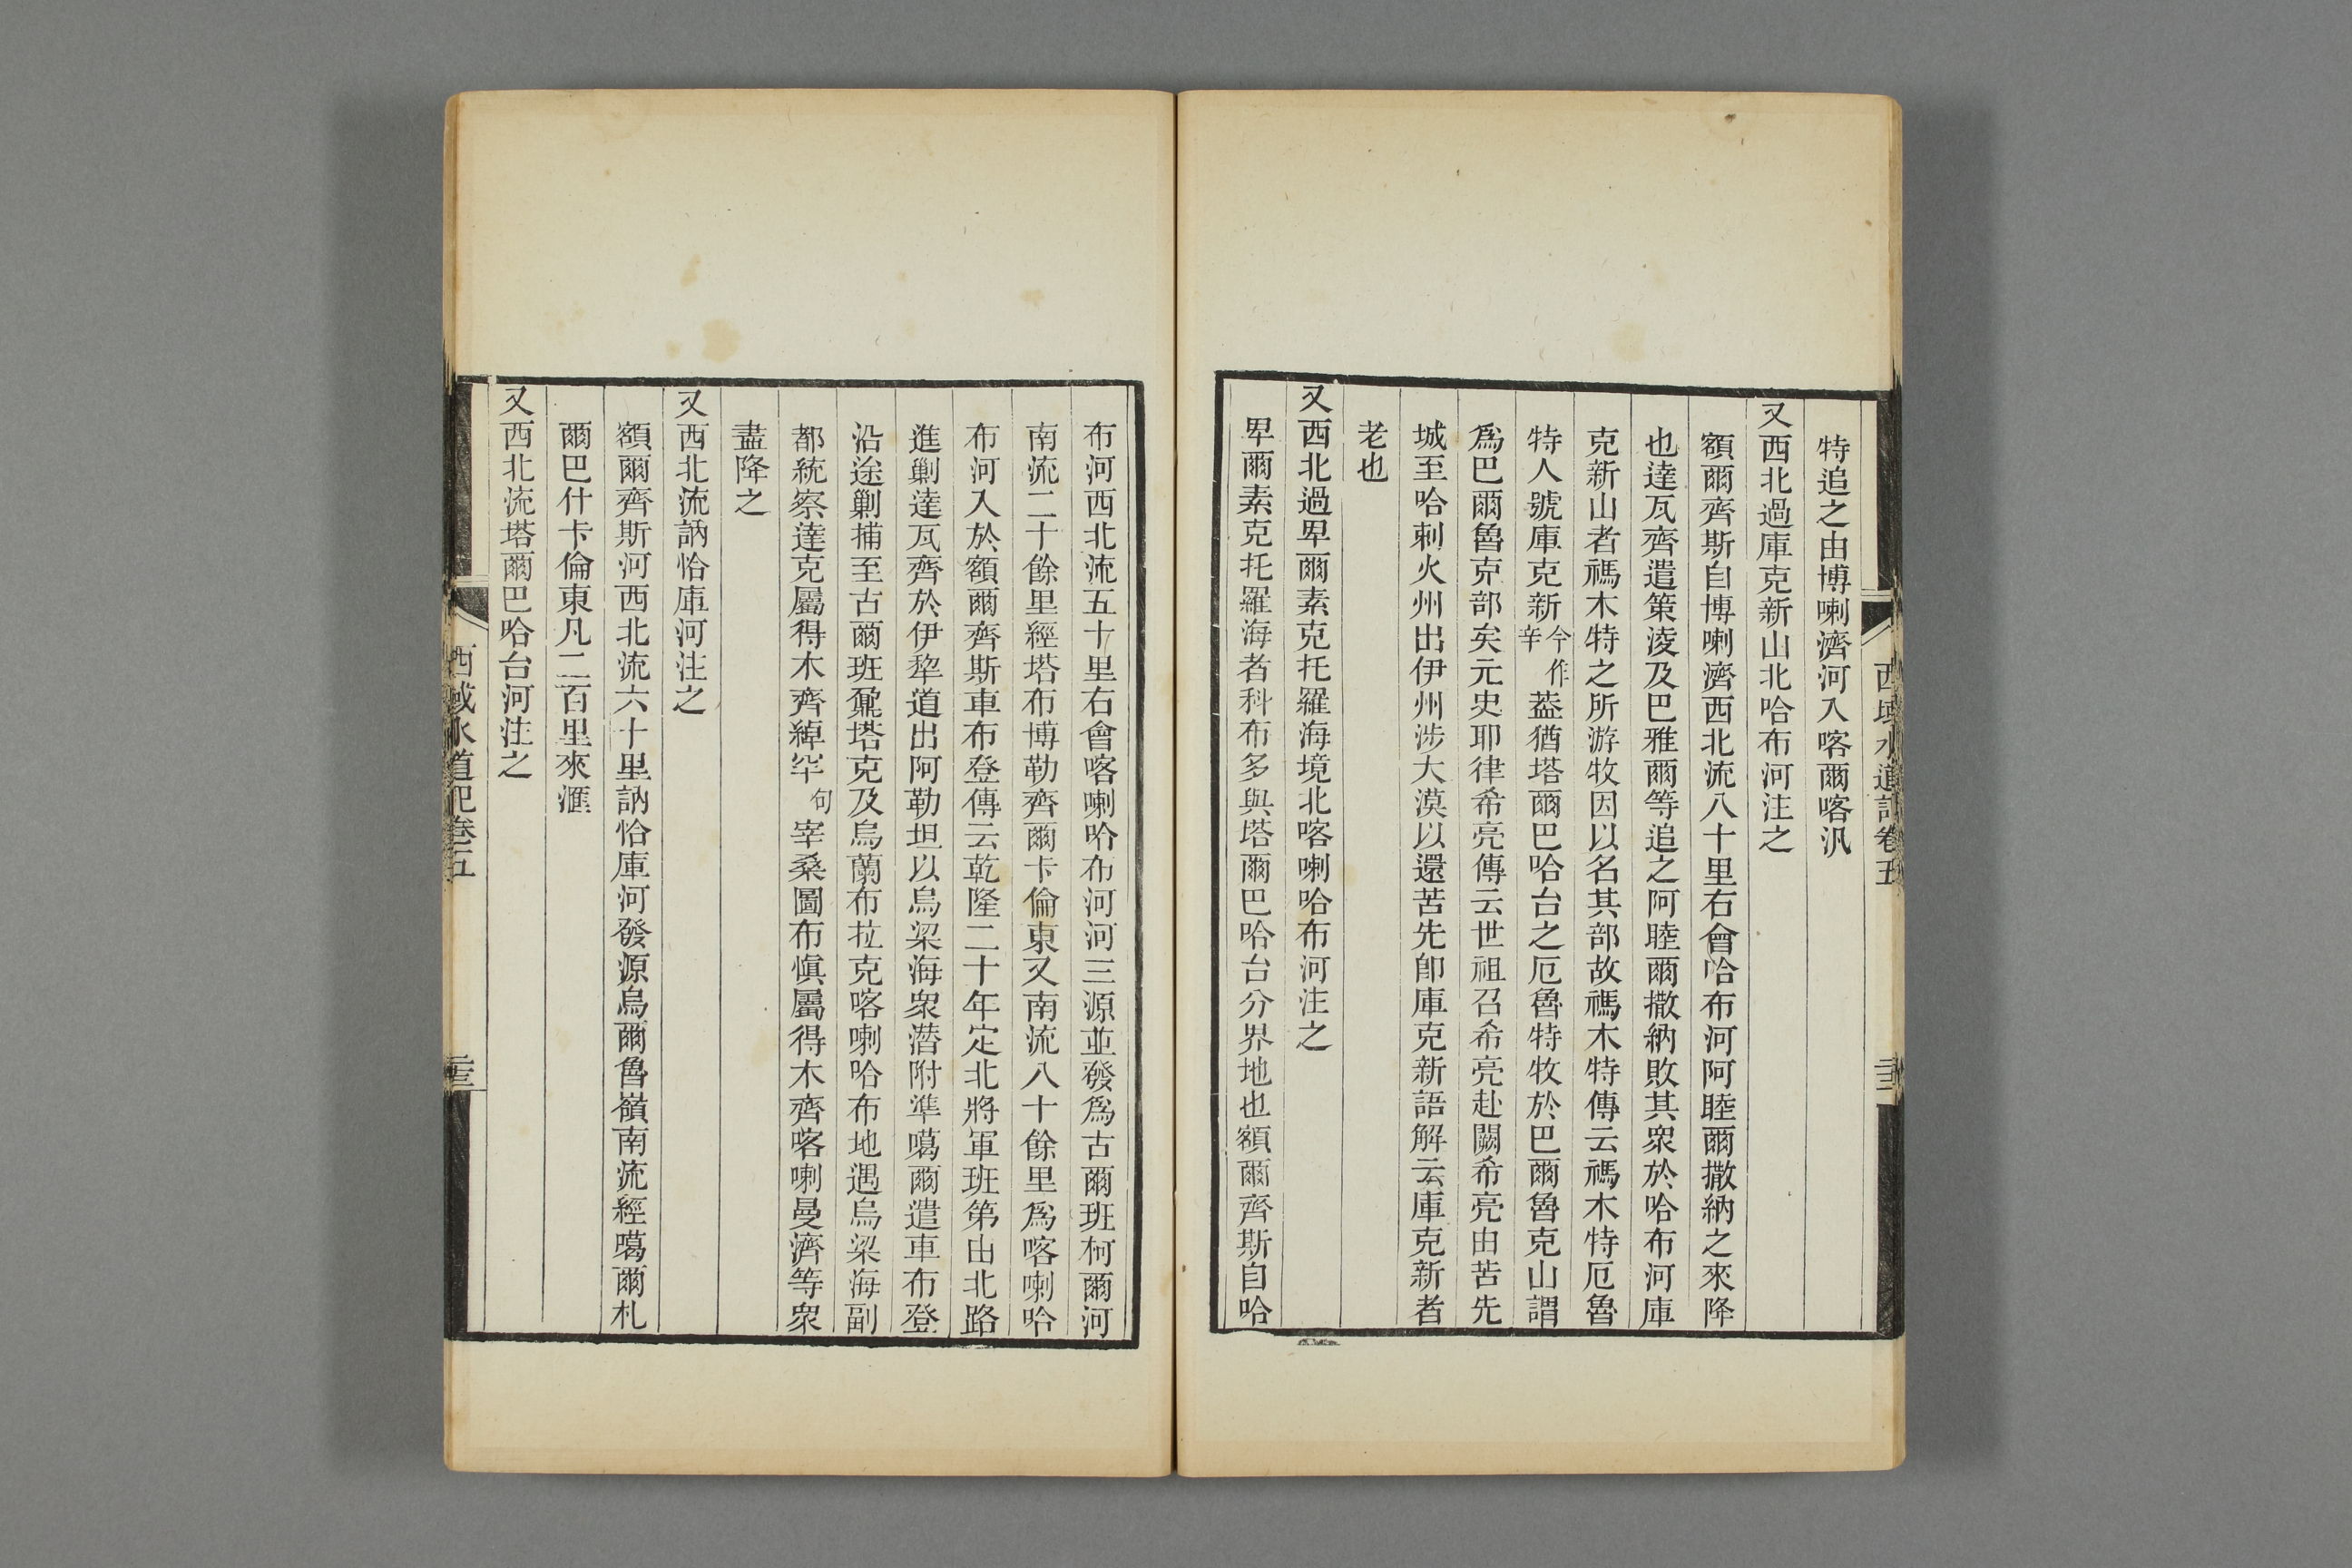 西域水道記卷五
特追之由博喇濟河入喀爾喀汛
又西北過庫克新山北哈布河注之
額爾齊斯自博喇濟西北流八十里右會哈布河阿睦爾撒納之來降
也達瓦齊遣策淩及巴雅爾等追之阿睦爾撒納敗其衆於哈布河庫
克新山者禡木特之所游牧因以名其部故禡木特傳云禡木特厄魯
特人號庫克新今作辛葢猶塔爾巴哈台之厄魯特牧於巴爾魯克山謂
爲巴爾魯克部矣元史耶律希亮傳云世祖召希亮赴闕希亮由苦先
城至哈剌火州出伊州涉大漠以還苦先卽庫克新語解云庫克新者
老也
又西北過卑爾素克托羅海境北喀喇哈布河注之
卑爾素克托羅海者科布多與塔爾巴哈台分界地也額爾齊斯自哈
布河西北流五十里右會喀喇哈布河河三源並發爲古爾班柯爾河
南流二十餘里經塔布博勒齊爾卡倫東又南流八十餘里爲喀喇哈
布河入於額爾齊斯車布登傳云乾隆二十年定北將軍班第由北路
進剿達瓦齊於伊犂道出阿勒坦以烏梁海衆潛附準噶爾遣車布登
沿途剿捕至古爾班鼐塔克及烏蘭布拉克喀喇哈布地遇烏梁海副
都統察達克屬得木齊綽罕句宰桑圖布愼屬得木齊喀喇曼濟等衆
盡降之
又西北流訥恰庫河注之
額爾齊斯河西北流六十里訥恰庫河發源烏爾魯嶺南流經噶爾札
爾巴什卡倫東凡二百里來滙
又西北流塔爾巴哈台河注之
西域水道記卷五